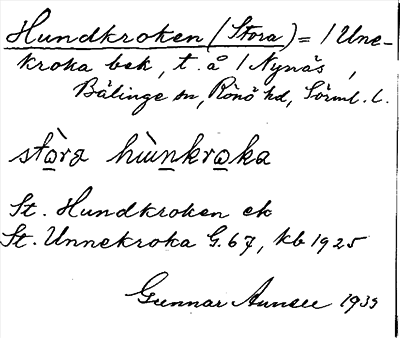 Hundkroken (Stora) = / Unne-
kroka bek, t. å / Nynäs,
Bälinge sn, Rönö hd, Sörml. l.
stòra hùnkroka
St. Hundkroken ek
St. Unnekroka G. 67, kb 1925
Gunnar 1939